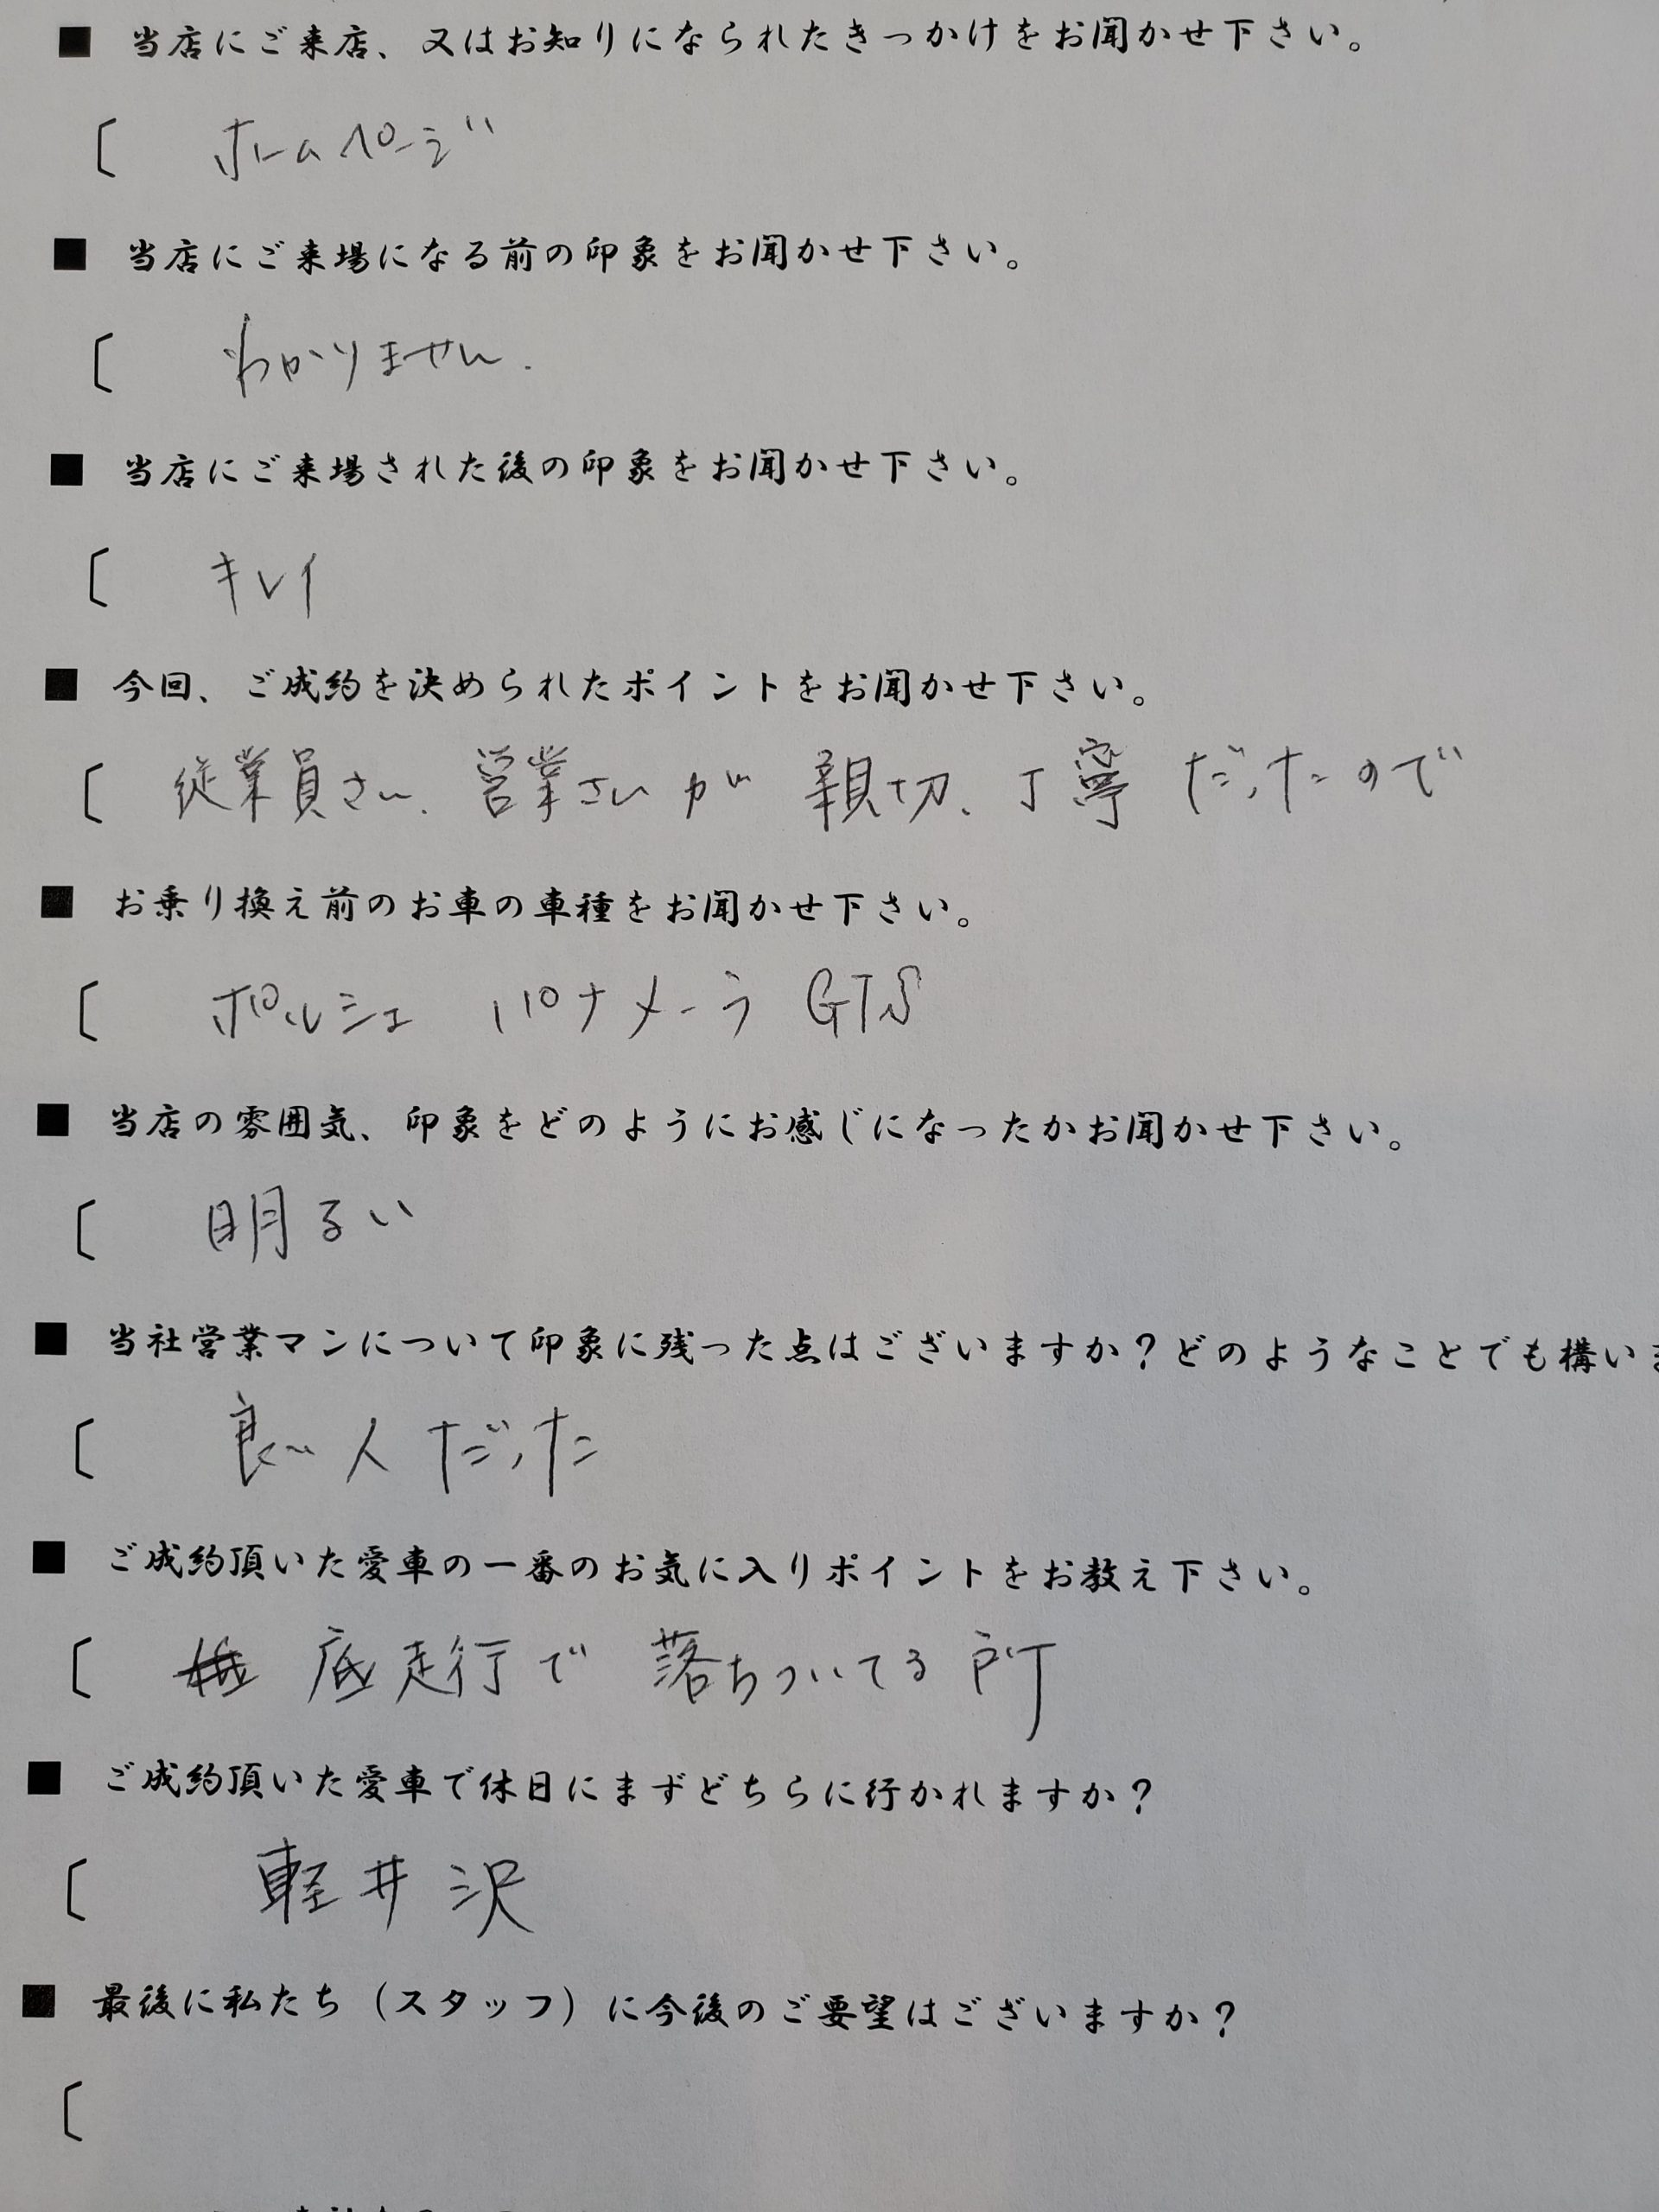 ■ 当店にご来店、又はお知りになられたきっかけをお聞かせ下さい。
〔 ホームページ
■ 当店にご来場になる前の印象をお聞かせ下さい。
〔 わかりません.
■ 当店にご来場された後の印象をお聞かせ下さい。
〔 キレイ
■ 今回、ご成約を決められたポイントをお聞かせ下さい。
〔 従業員さん、営業さんが 親切、丁寧 だったので
■ お乗り換え前のお車の車種をお聞かせ下さい。
〔 ポルシェ パナメーラ GTS
■ 当店の雰囲気、印象をどのようにお感じになったかお聞かせ下さい。
〔 明るい
■ 当社営業マンについて印象に残った点はございますか?どのようなことでも構いま
〔 良い人だった
■ ご成約頂いた愛車の一番のお気に入りポイントをお教え下さい。
〔 底走行で 落ちついてる所
■ ご成約頂いた愛車で休日にまずどちらに行かれますか?
〔 軽井沢
■ 最後に私たち(スタッフ)に今後のご要望はございますか?
〔